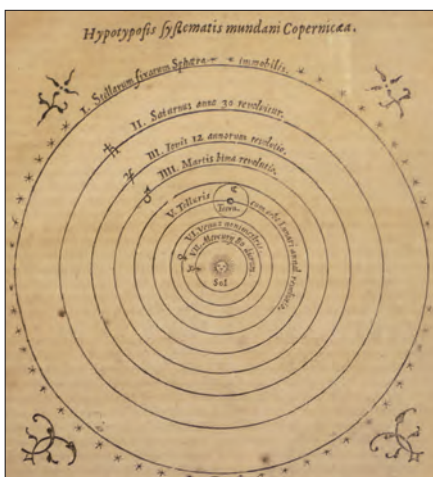 Hypotyposis systematis mundani Copernicæa.
I. Stellarum fixarum Sphæra immobilis.
II. Saturnus anno 30 revolvitur.
III. Iovis 12 annorum revolutio.
IIII. Martis bima revolutio.
V. Telluris cum orbe Lunari annal revolutio.
Terra.
VI. Venus nonimestris.
VII. Mercurij 80 dierum
Sol